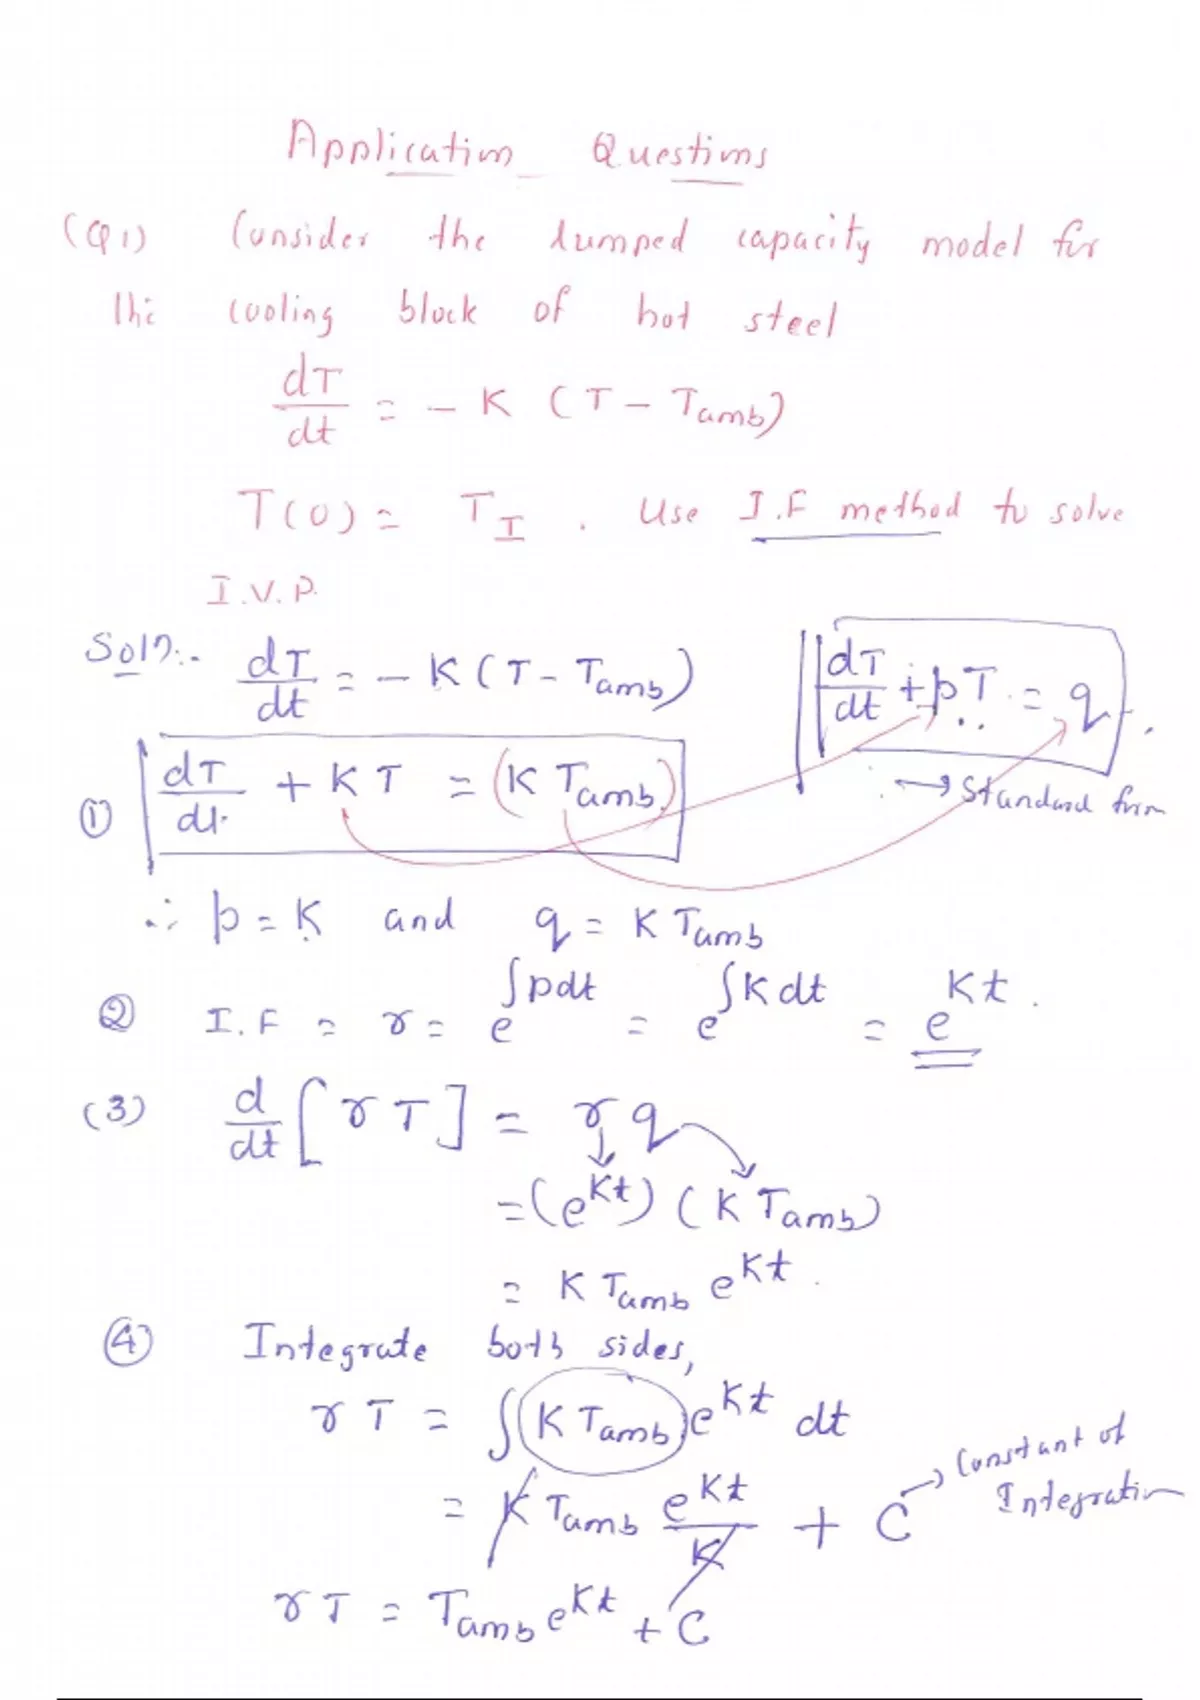 Application Questions
(Q1) Consider the lumped capacity model for
the cooling block of hot steel
dT/dt = - K (T - Tamb)
T(0) = T_I . Use I.F method to solve
I.V.P.
Soln:- dT/dt = - K (T - Tamb)
dT/dt + pT = q.
① dT/dt + KT = (K Tamb)
→ Standard form
∴ p = K and q = K Tamb
② I.F = r = e^∫pdt = e^∫K dt = e^Kt.
(3) d/dt [r T] = r q
= (e^Kt) (K Tamb)
= K Tamb e^Kt.
④ Integrate both sides,
r T = ∫(K Tamb) e^Kt dt
= K Tamb e^Kt/K + C → Constant of Integration
r T = Tamb e^Kt + C